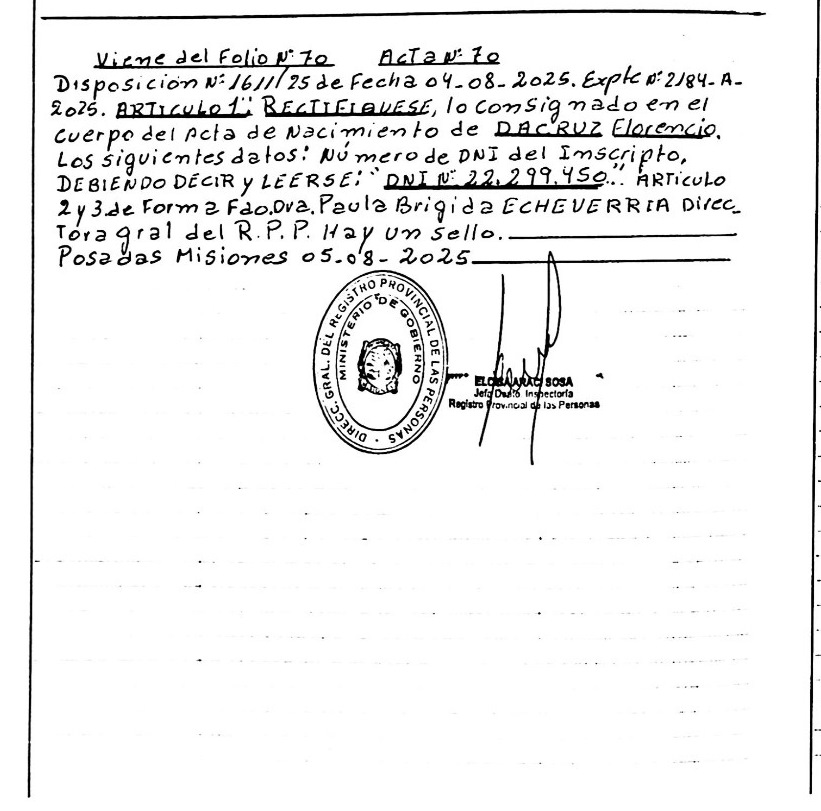 Viene del Folio Nº 70 Acta Nº 70
Disposición Nº 1611/25 de Fecha 04-08-2025. Expte Nº 2184-A-
2025. ARTICULO 1º: RECTIFIQUESE, lo consignado en el
cuerpo del Acta de Nacimiento de DACRUZ Florencio.
Los siguientes datos: Número de DNI del Inscripto,
DEBIENDO DECIR y LEERSE: "DNI Nº 22.299.450". ARTICULO
2 y 3 de Forma Fdo. Dra. Paula Brigida ECHEVERRIA Direc_
Tora gral del R.P.P. Hay un sello.
Posadas Misiones 05-08-2025
DIRECC. GRAL. DEL REGISTRO PROVINCIAL DE LAS PERSONAS
MINISTERIO DE GOBIERNO
SOSA
Jefa Dpto. Inspectoría
Registro Provincial de las Personas